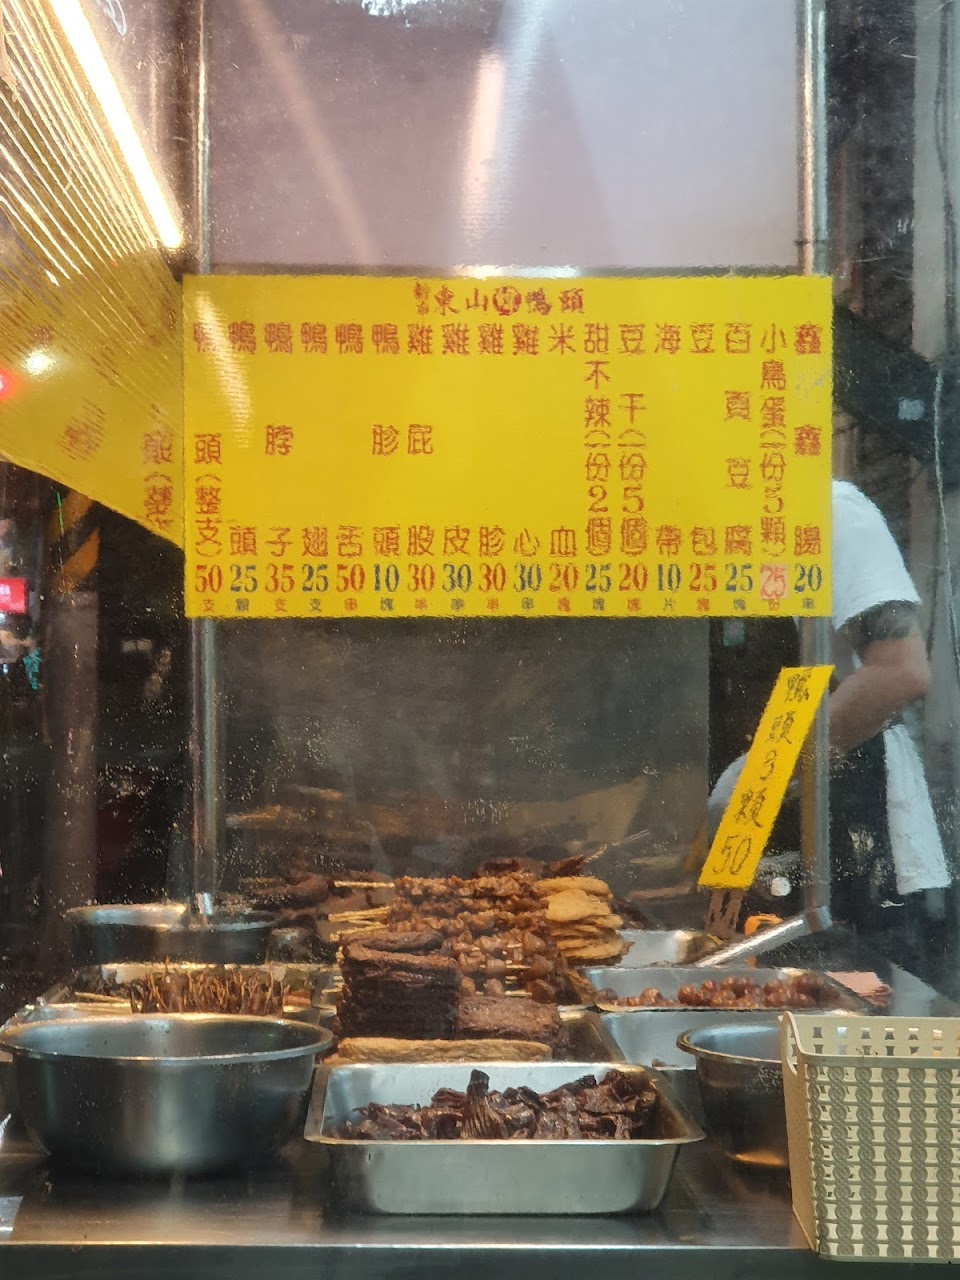 東山鴨頭
鴨頭(整支)50支
鴨頭25顆
鴨脖子35支
鴨翅25支
鴨舌50串
鴨胗頭10塊
雞屁股30串
雞皮30串
雞胗30串
雞心30串
米血20塊
甜不辣(一份2個)25塊
豆干(一份5個)20塊
海帶10片
豆包25塊
百頁豆腐25塊
小鳥蛋(一份5顆)25份
鑫鑫腸20串
鴨頭3顆50